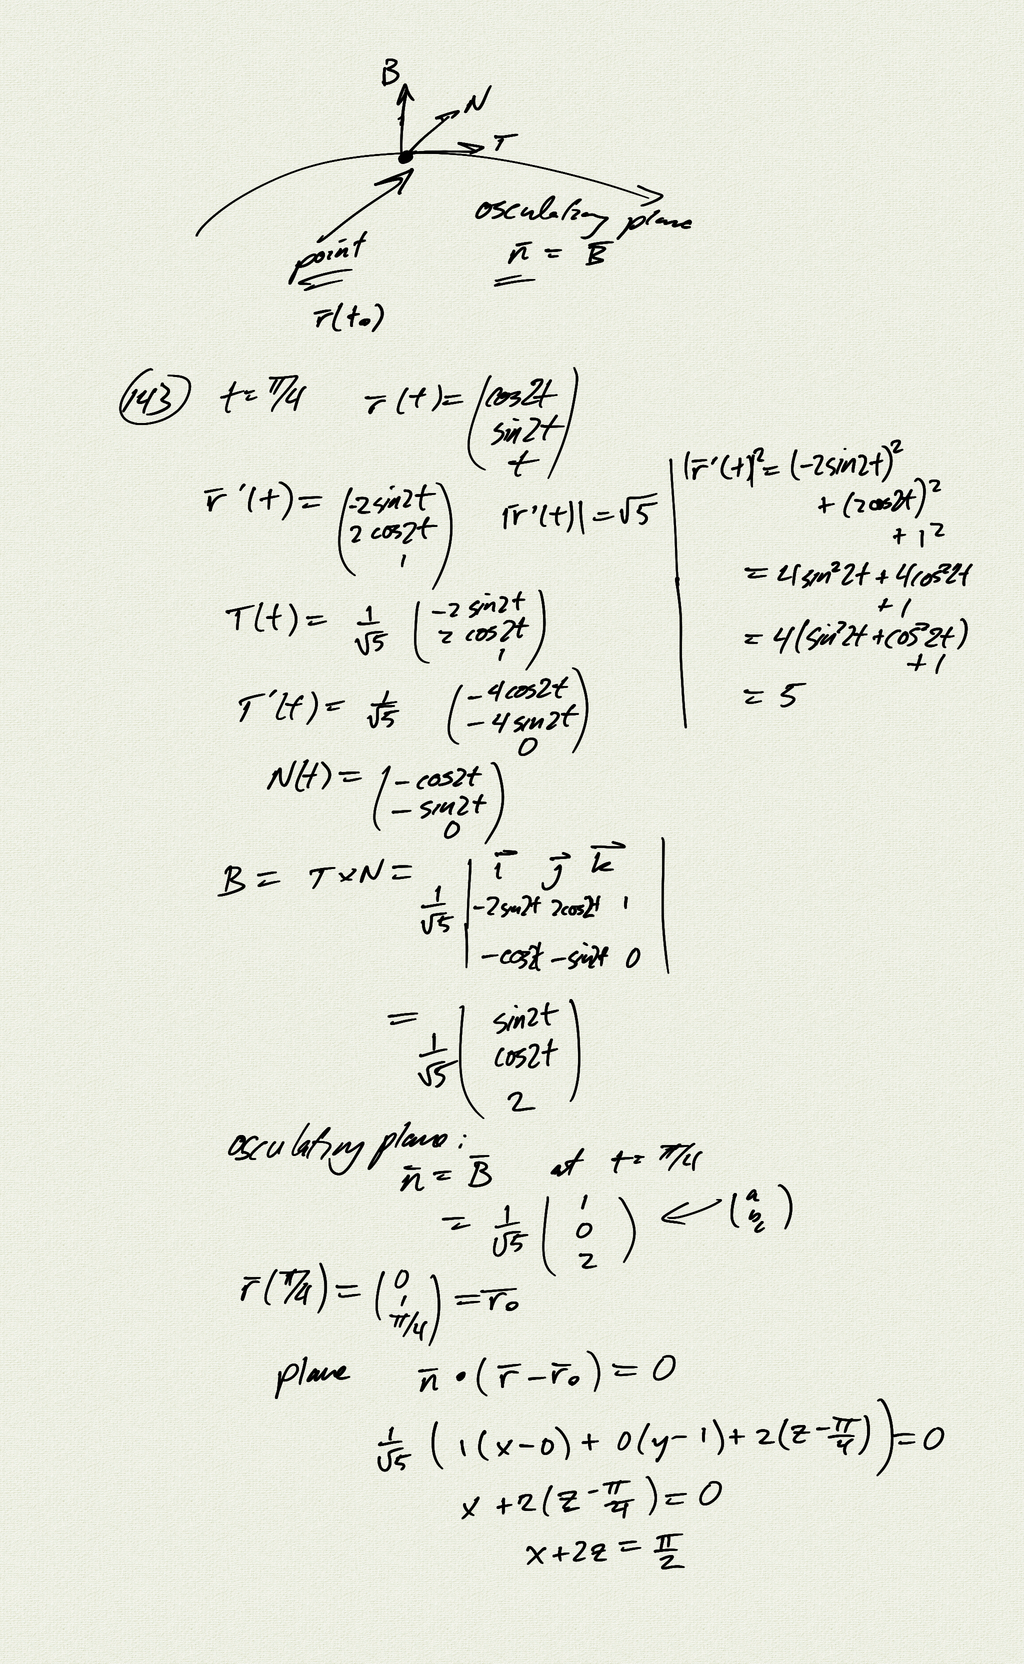 B
N
T
osculating plane
n̄ = B̄
point
r̄(t₀)
(143) t=π/4 r̄(t)=(cos2t
sin2t
t)
r̄'(t)=(-2sin2t
2cos2t
1) |r̄'(t)|=√5
|r̄'(t)|²=(-2sin2t)²
+(2cos2t)²
+1²
=4sin²2t+4cos²2t
+1
=4(sin²2t+cos²2t)
+1
=5
T(t)= 1/√5 (-2sin2t
2cos2t
1)
T'(t)= 1/√5 (-4cos2t
-4sin2t
0)
N(t)=(-cos2t
-sin2t
0)
B= T×N= 1/√5 | i⃗ j⃗ k⃗
-2sin2t 2cos2t 1
-cos2t -sin2t 0 |
= 1/√5 (sin2t
cos2t
2)
osculating plane:
n̄=B̄ at t=π/4
= 1/√5 (1
0
2) ← (a
b
c)
r̄(π/4)=(0
1
π/4)=r̄₀
plane n̄•(r̄-r̄₀)=0
1/√5 (1(x-0)+0(y-1)+2(z-π/4))=0
x+2(z-π/4)=0
x+2z=π/2